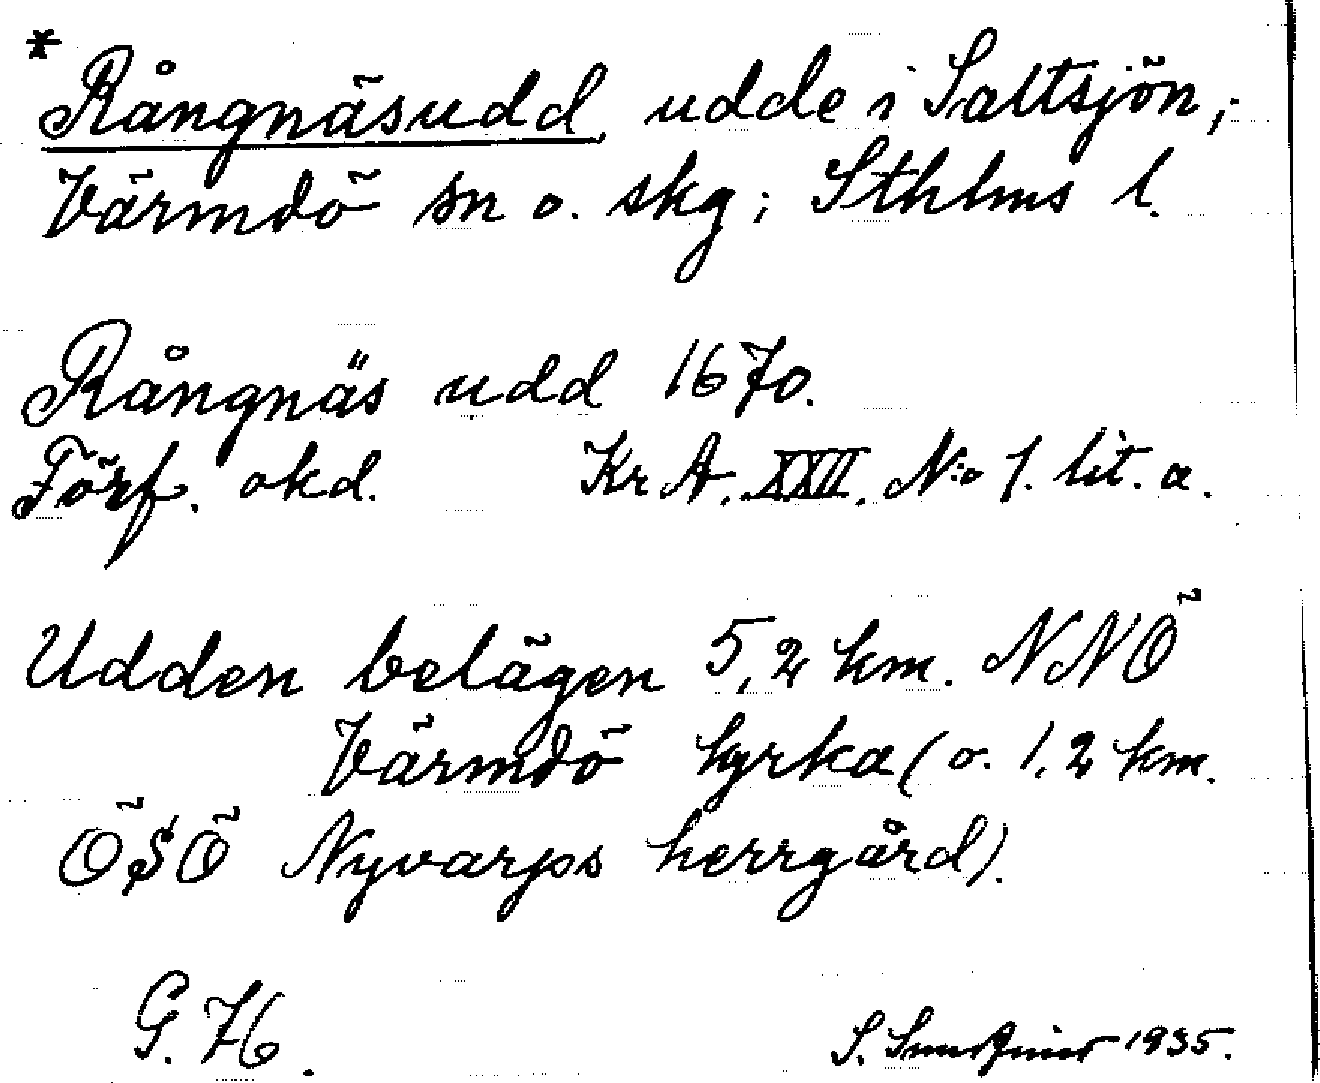 * Rångnäsudd, udde i Saltsjön,
Värmdö sn o. skg; Sthlms l.
Rångnäs udd 1670.
Förf. okd. Kr A. XXII. N:o 1. lit. a.
Udden belägen 5,2 km. NNÖ
Värmdö kyrka (o. 1,2 km.
ÖSÖ Nyvarps herrgård).
G. H.
S. 1935.